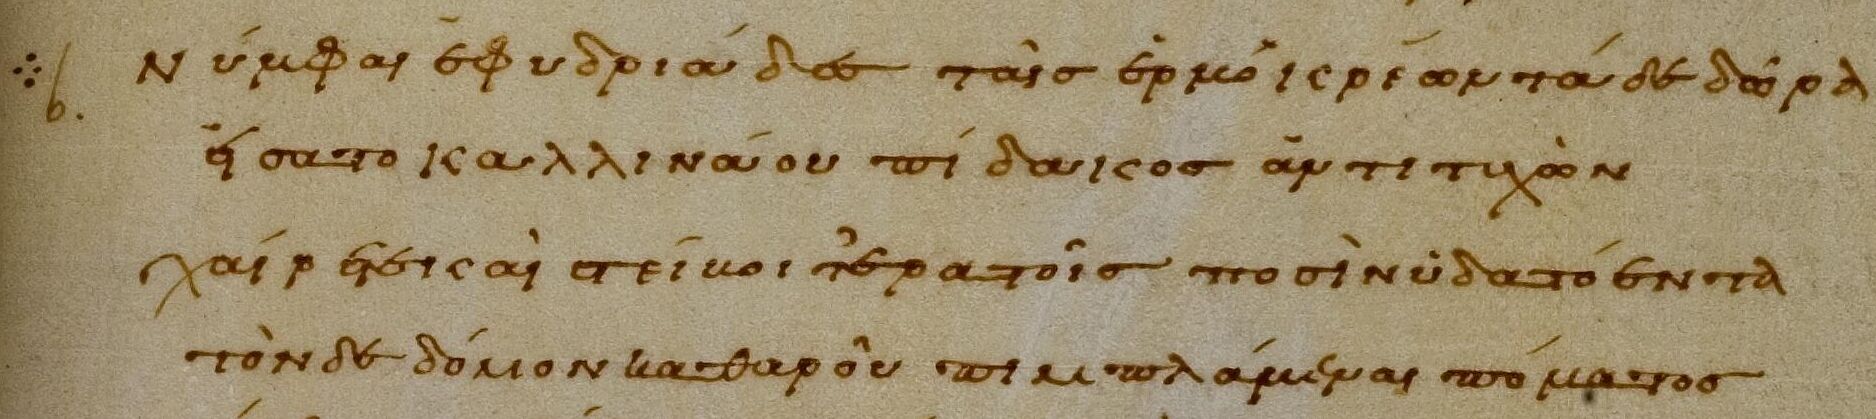 Νύμφαι ἐφυδριάδες ταῖς ἑρμόκρέων τάδε δῶρα
εἵσατο καλλινάου πίδακος ἀντιτυχὼν
χαίρετε καὶ στείβοιτ' ἐρατοῖς ποσὶν ὑδατόεντα
τόνδε δόμον καθαροῦ πιμπλάμεναι πόματος